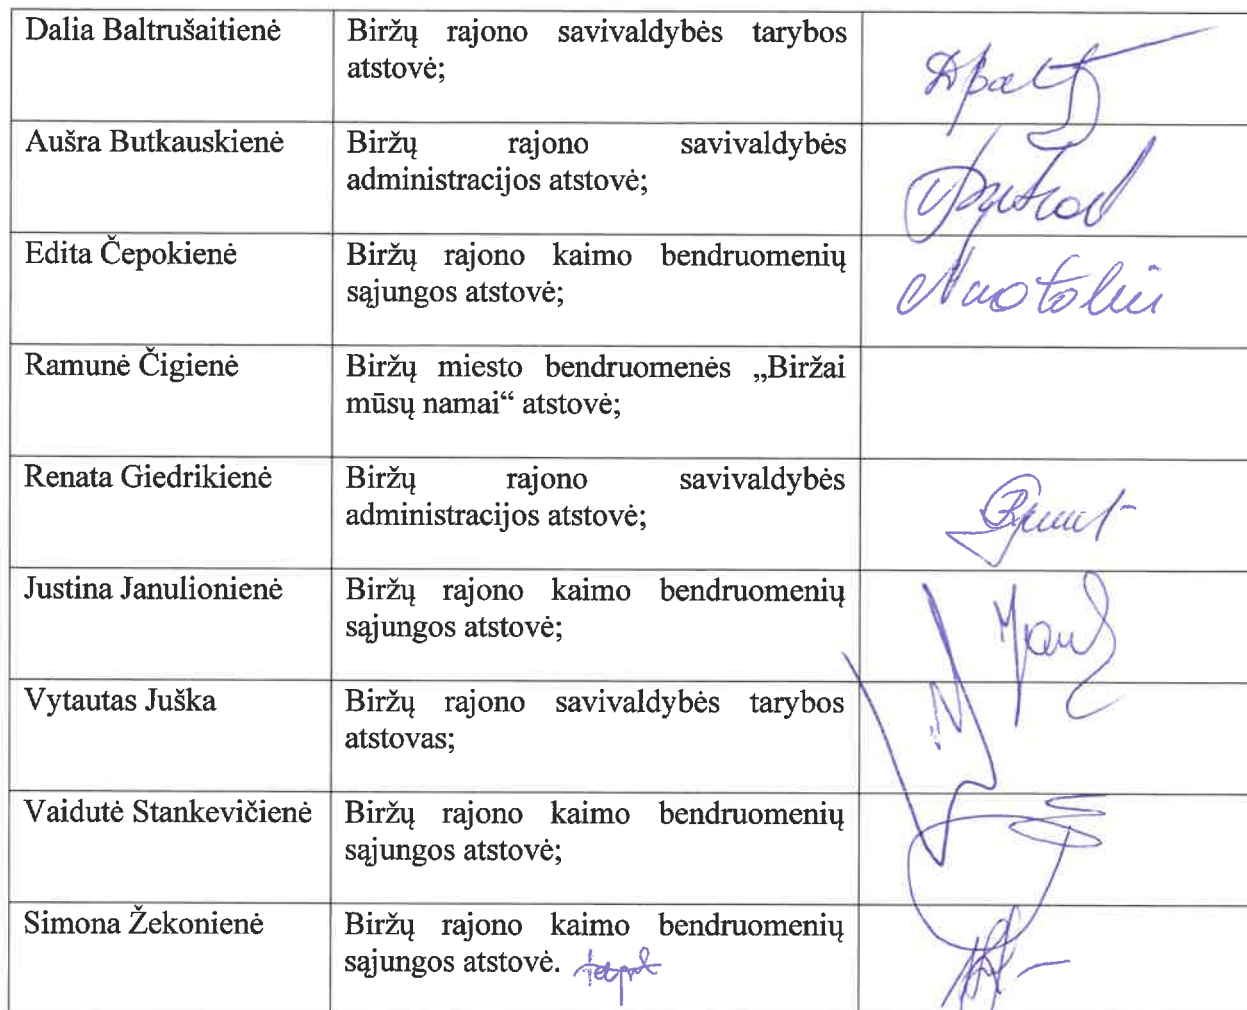 Dalia Baltrušaitienė
Biržų rajono savivaldybės tarybos
atstovė;
Aušra Butkauskienė
Biržų rajono savivaldybės
administracijos atstovė;
Edita Čepokienė
Biržų rajono kaimo bendruomenių
sąjungos atstovė;
Ramunė Čigienė
Biržų miesto bendruomenės „Biržai
mūsų namai“ atstovė;
Renata Giedrikienė
Biržų rajono savivaldybės
administracijos atstovė;
Justina Janulionienė
Biržų rajono kaimo bendruomenių
sąjungos atstovė;
Vytautas Juška
Biržų rajono savivaldybės tarybos
atstovas;
Vaidutė Stankevičienė
Biržų rajono kaimo bendruomenių
sąjungos atstovė;
Simona Žekonienė
Biržų rajono kaimo bendruomenių
sąjungos atstovė.